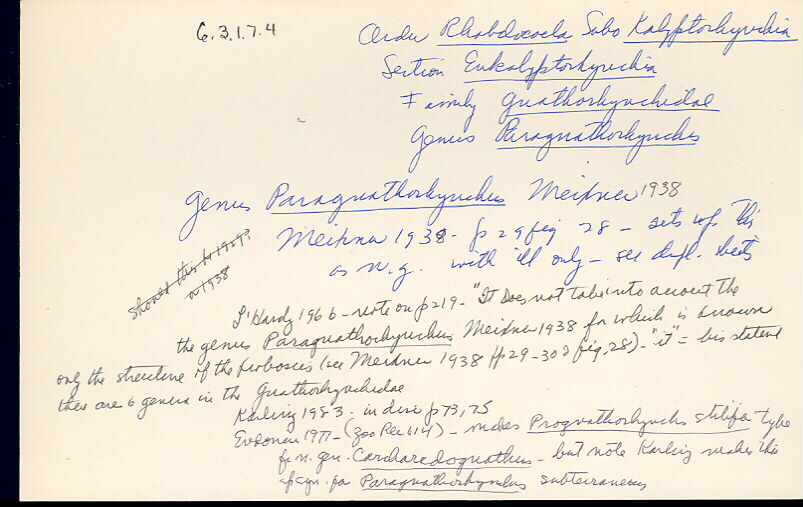 6.3.1.7.4
Order Rhabdocoela Subo Kalyptorhynchia
Section Eukalyptorhynchia
Family Gnathorhynchidae
Genus Paragnathorhynchus
Genus Paragnathorhynchus Meixner 1938
Meixner 1938 - p 29 fig 28 - sets up this
as n.g. with ill only - see dupl. sheets
should this be 1929?
or 1938
L'Hardy 1966 - note on p 219 - "It does not take into account the
the genus Paragnathorhynchus Meixner 1938 for which is known
only the structure of the proboscis (see Meixner 1938 pp 29-30 & fig. 28) - "it" = his statemt
there are 6 genera in the Gnathorhynchidae
Karling 1983 - in disc p 73, 75
Evdonin 1977 - (Zoo Rec 114) - makes Prognathorhynchus stilifer type
for n. gen. Carcharodognathus - but note Karling makes this
syn. for Paragnathorhynchus subterraneus